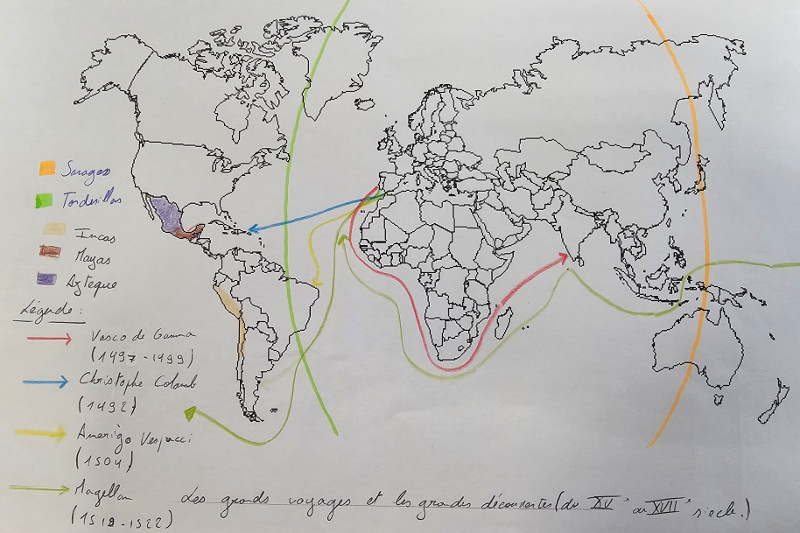 Saragos
Tordesillas
Incas
Mayas
Aztèque
Légende :
Vasco de Gamma
(1497-1499)
Christophe Colomb
(1492)
Amerigo Vespucci
(1504)
Magellan
(1519-1522)
Les grands voyages et les grandes découvertes (du XVe au XVIIe siècle.)